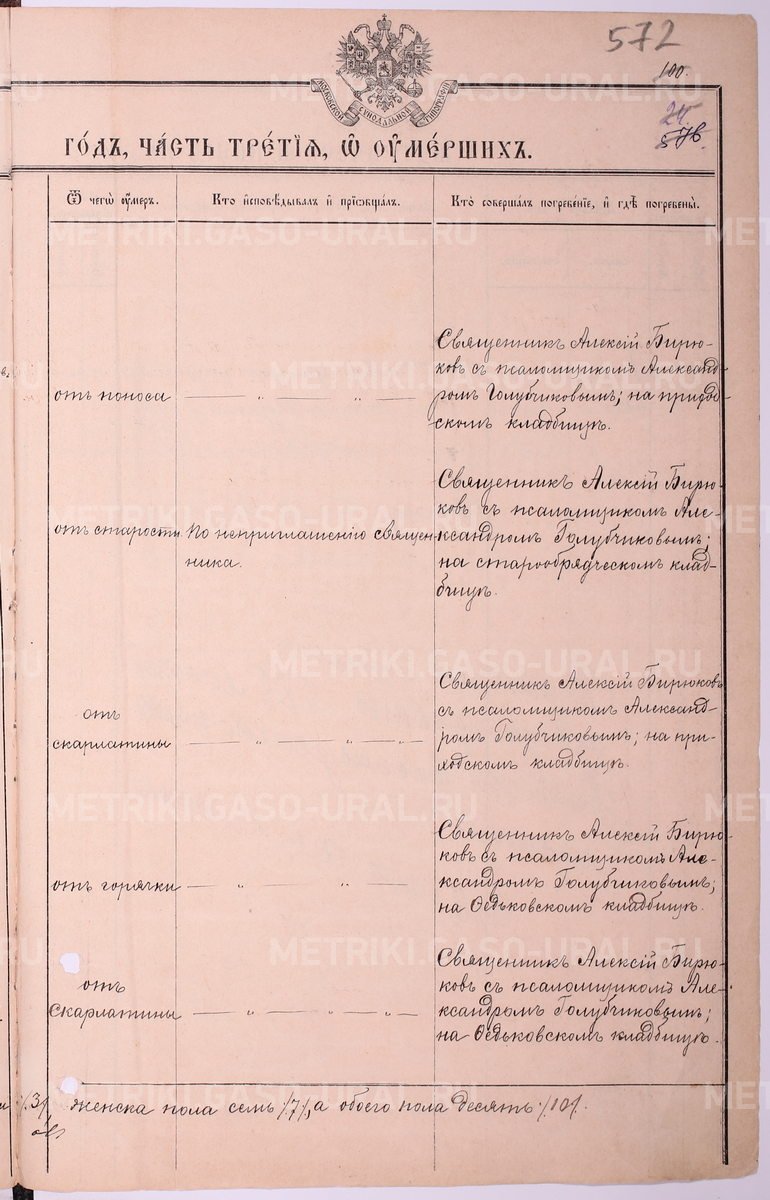 572
100.
24.
МОСКОВСКОЙ СѴНОДАЛЬНОЙ ТИПОГРАФІИ
ГО́ДЪ, ЧА́СТЬ ТРЕ́ТІѦ, Ѡ҆ ОУ҆МЕ́РШИХЪ.
Ѿ чегѡ̀ оу҆́меръ.
Кто̀ и҆сповѣ́дывалъ и҆ прїѡбща́лъ.
Кто̀ соверша́лъ погребе́нїе, и҆ гдѣ̀ погребены̀.
Священникъ Алексій Бирю-
ковъ съ псаломщикомъ Александ-
ромъ Голубчиковымъ; на приход-
скомъ кладбищѣ.
отъ поноса — „ — „ —
Священникъ Алексій Бирю-
ковъ съ псаломщикомъ Але-
ксандромъ Голубчиковымъ;
на старообрядческомъ клад-
бищѣ.
отъ старости.
По неприглашенію священ-
ника.
Священникъ Алексій Бирюковъ
съ псаломщикомъ Александ-
ромъ Голубчиковымъ; на при-
ходскомъ кладбищѣ.
отъ
скарлатины — „ — „ — „ —
Священникъ Алексій Бирю-
ковъ съ псаломщикомъ Але-
ксандромъ Голубчиковымъ;
на Федьковскомъ кладбищѣ.
отъ горячки — „ — „ —
Священникъ Алексій Бирю-
ковъ съ псаломщикомъ Але-
ксандромъ Голубчиковымъ;
на Федьковскомъ кладбищѣ.
отъ
Скарлатины — „ — „ — „ —
/3/, женска пола семь /7/, а обоего пола десять /10/.
METRIKI.GASO-URAL.RU